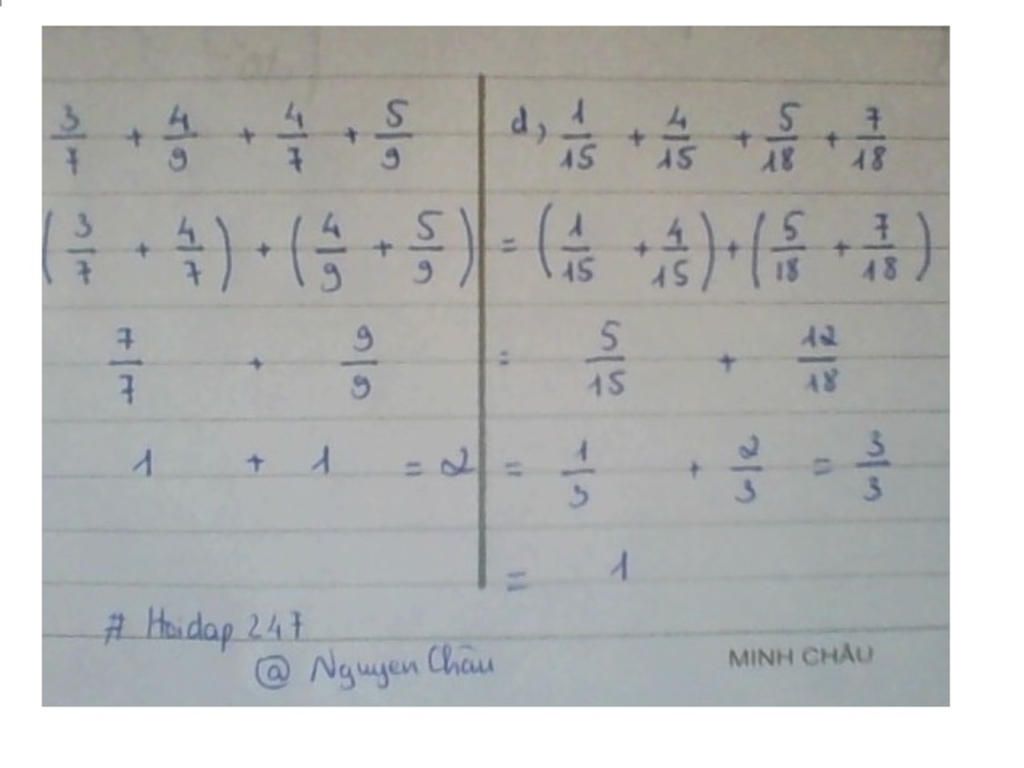 3/7 + 4/9 + 4/7 + 5/9
(3/7 + 4/7) + (4/9 + 5/9)
7/7 + 9/9
1 + 1 = 2
d, 1/15 + 4/15 + 5/18 + 7/18
= (1/15 + 4/15) + (5/18 + 7/18)
= 5/15 + 12/18
= 1/3 + 2/3 = 3/3
= 1
# Hoidap 247
@ Nguyen Châu
MINH CHÂU